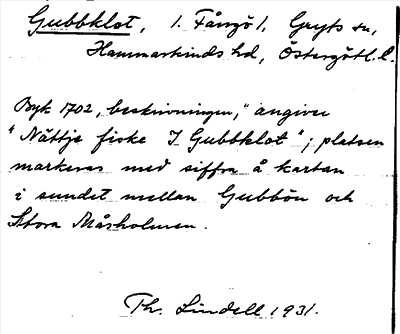 Gubbklot, l. Fångö l, Gryts sn,
Hammarkinds hd, Östergötl. l.
Byk 1702, beskrivningen," angiver
"Nättje fiske I Gubbklot"; platsen
markeras med siffra å kartan
i sundet mellan Gubbön och
Stora Måsholmen.
Th. Lindell 1931.